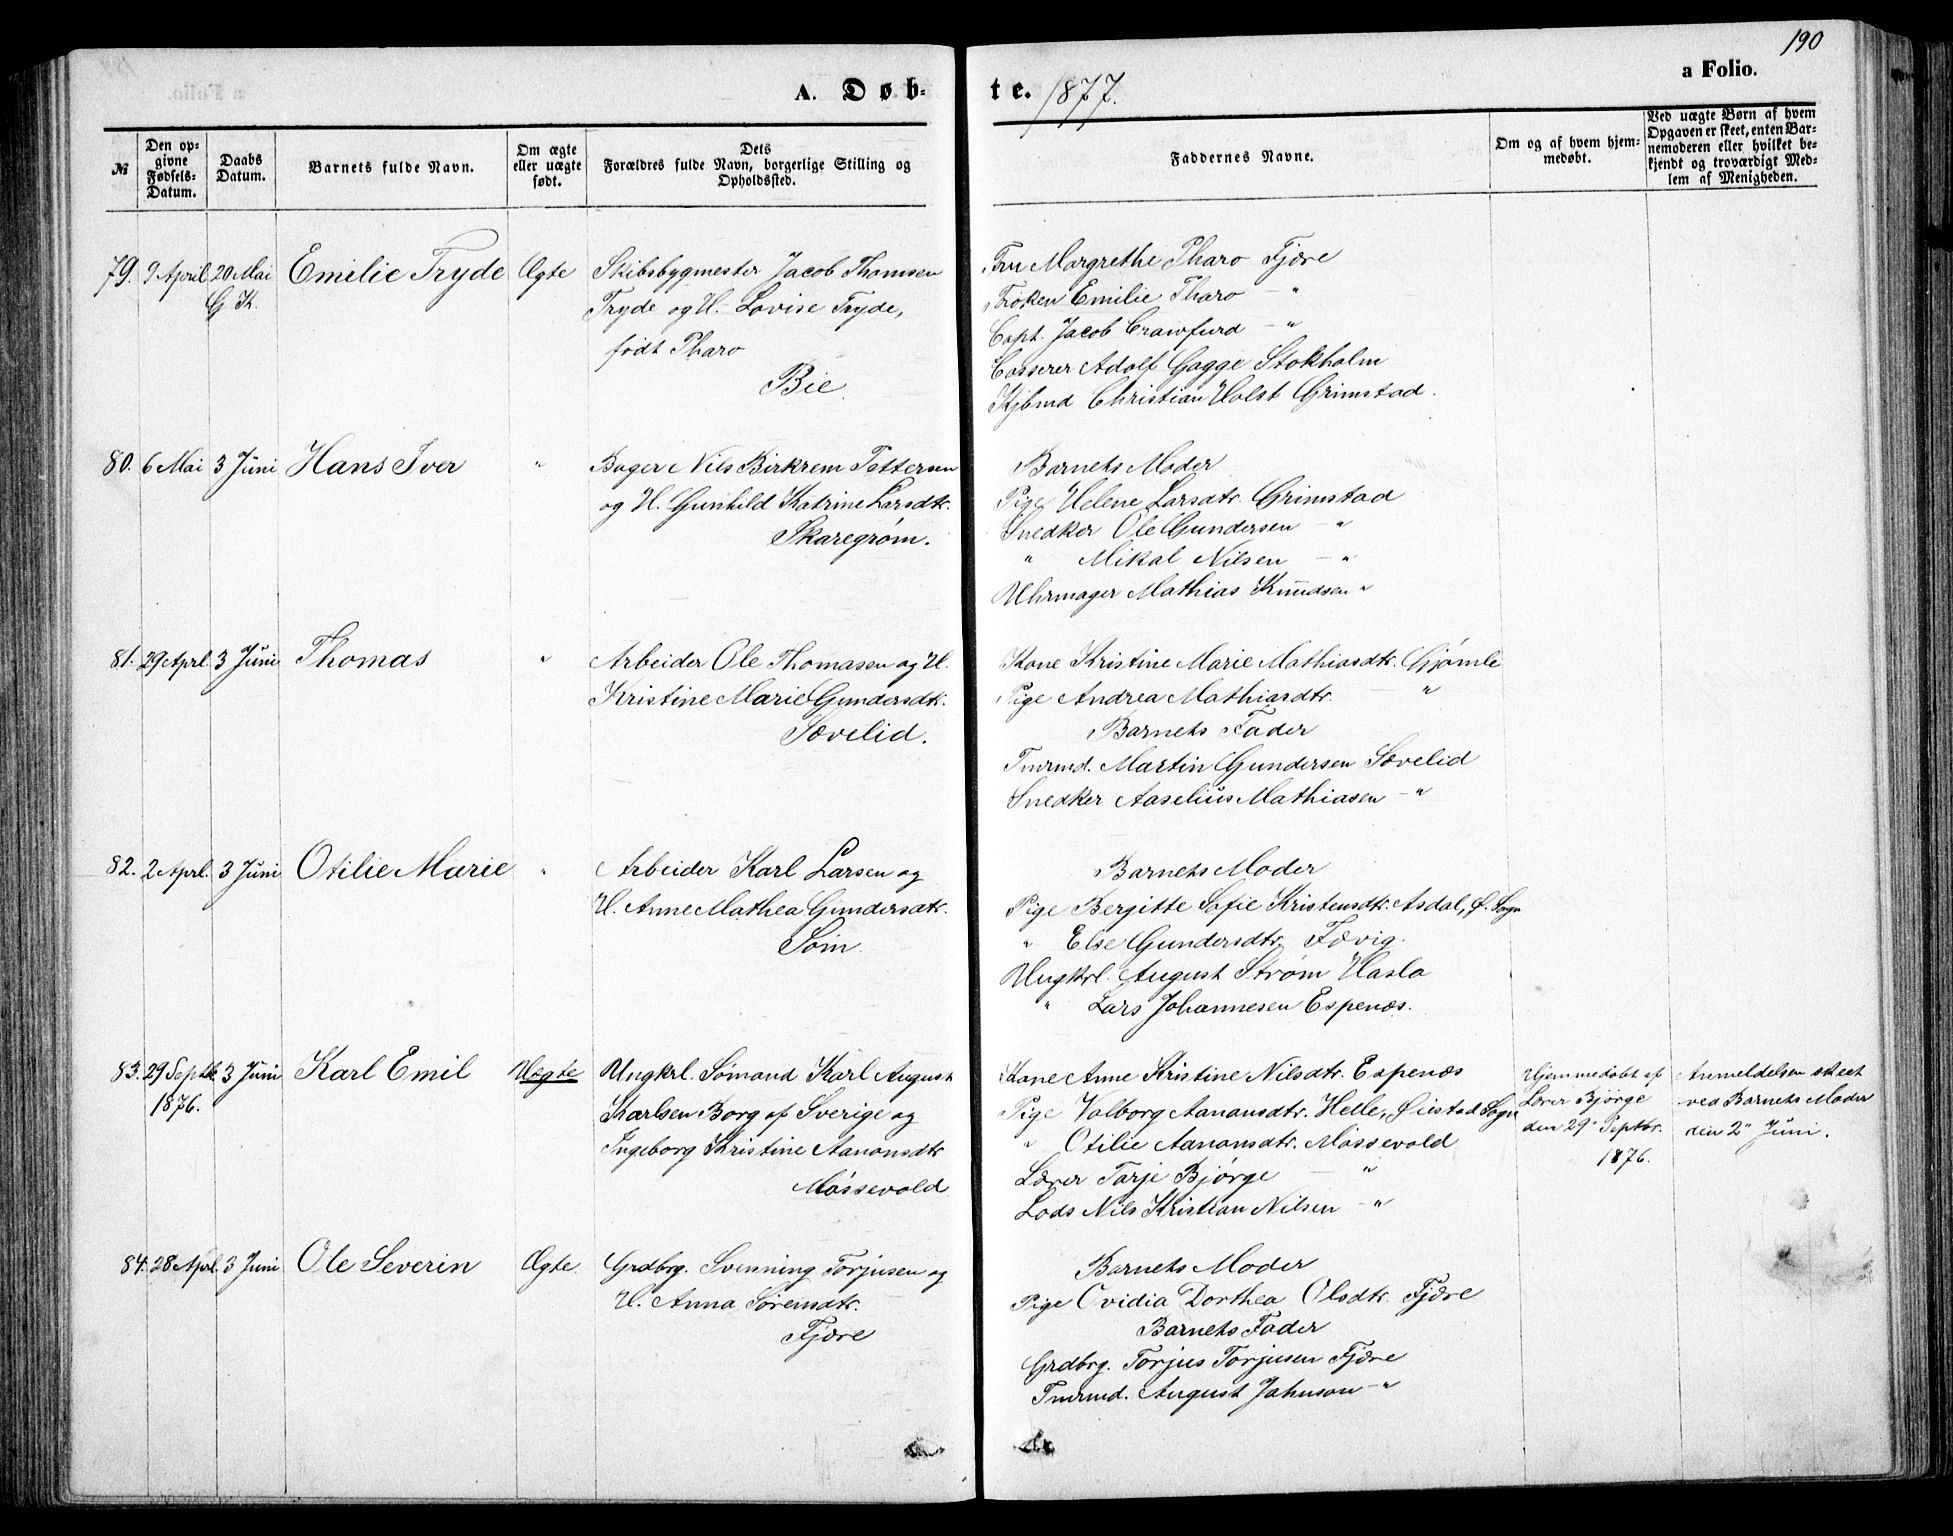 190
a Folio.
A. Døb-
te. 1877.
№
Den opgivne Fødsels-Datum.
Daabs Datum.
Barnets fulde Navn.
Om ægte eller uægte født.
Dets Forældres fulde Navn, borgerlige Stilling og Opholdssted.
Faddernes Navne.
Om og af hvem hjemmedøbt.
Ved uægte Børn af hvem
Opgaven er skeet, enten Bar-
nemoderen eller hvilket be-
kjendt og troværdigt Med-
lem af Menigheden.
79. 9 April 20 Mai Emilie Tryde Ægte Skibsbygmester Jacob Thomsen
G. K. Tryde og H. Lovise Tryde,
født Pharo
Bie.
Fru Margrethe Pharo Fjære
Frøken Emilie Pharo — "
Capt. Jacob Crawfurd — "
Casserer Adolf Gagge Stokholm
Kjbmd Christian Holst Grimstad.
80. 6 Mai 3 Juni Hans Iver " Bager Nils Birkrem Pettersen
og H. Gunhild Katrine Larsdtr.
Skaregrøm.
Barnets Moder
Pige Helene Larsdtr. Grimstad
Snedker Ole Gundersen — "
" Mikal Nilsen — "
Uhrmager Mathias Knudsen "
81. 29 Aprl. 3 Juni Thomas " Arbeider Ole Thomasen og H.
Kristine Marie Gundersdtr.
Sævelid.
Kone Kristine Marie Mathiasdtr. Gjømle
Pige Andrea Mathiasdtr. "
Barnets Fader
Tmrmd. Martin Gundersen Sævelid
Snedker Aaselius Mathiasen — "
82. 2 Aprl. 3 Juni Otilie Marie " Arbeider Karl Larsen og
H. Anne Mathea Gundersdtr.
Søm
Barnets Moder
Pige Bergitte Sofie Kristensdtr. Asdal, Ø. Sogn
" Else Gundersdtr. Fævig.
Ungkrl. August Strøm Hasla
" Lars Johannesen Espenæs.
83. 29 Septbr. 3 Juni Karl Emil Uægte Ungkrl. Sømand Karl August
1876. Karlsen Borg af Sverige og
Ingeborg Kristine Aanonsdtr
Møssevold
Kone Anne Kristine Nilsdtr. Espenæs
Pige Valborg Aanonsdtr. Helle, Øiestad Sogn
" Otilie Aanonsdtr. Møssevold
Lærer Tarje Bjørge — "
Lods Nils Kristian Nilsen — "
Hjemmedøbt af
Lærer Bjørge
den 29" Septbr.
1876.
Anmeldelsen skeet
ved Barnets Moder
den 2" Juni.
84. 28 Aprl. 3 Juni Ole Severin Ægte. Grdbrg. Svenning Torjusen og
H. Anna Sørensdtr.
Fjære
Barnets Moder
Pige Ovidia Dorthea Olsdtr. Fjære
Barnets Fader
Grdbrg. Torjus Torjusen Fjære
Tmrmd. August Johnson — "